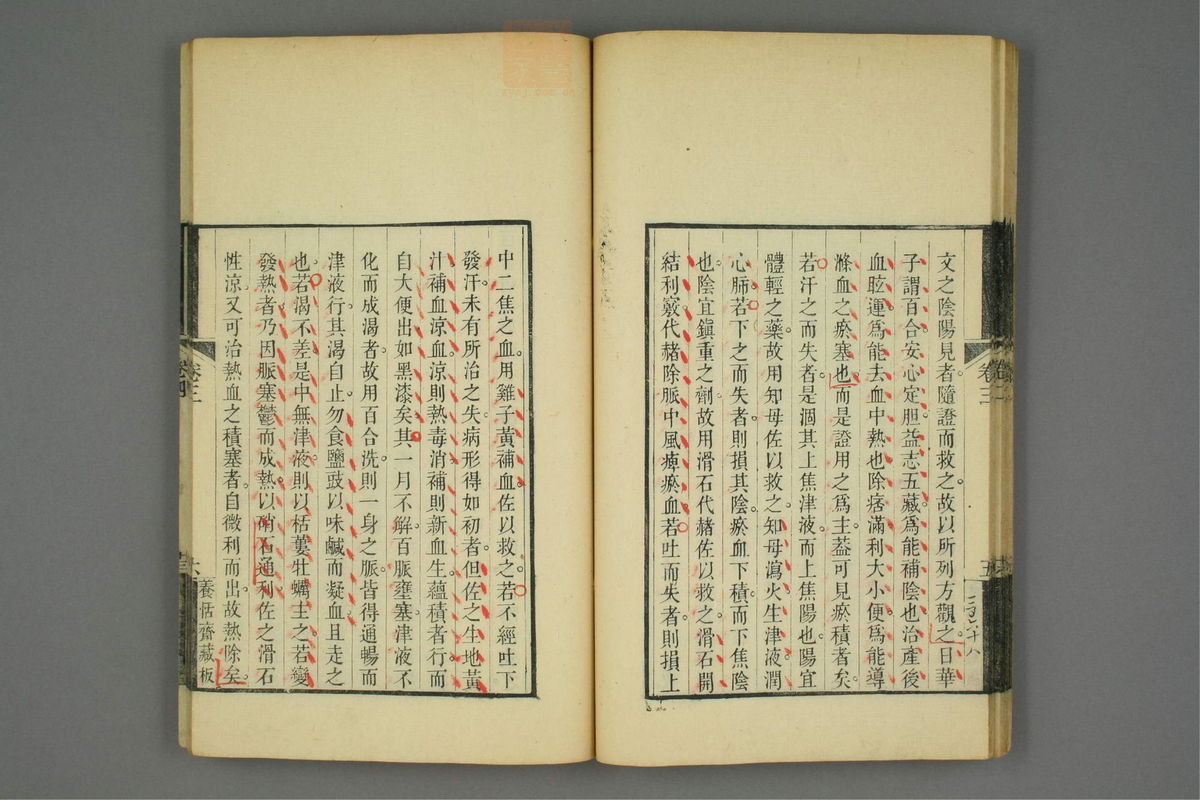 文之陰陽見者隨證而救之故以所列方觀之日華
子謂百合安心定胆益志五藏爲能補陰也治產後
血眩運爲能去血中熱也除痞滿利大小便爲能導
滌血之瘀塞也而是證用之爲主葢可見瘀積者矣
若汗之而失者是涸其上焦津液而上焦陽也陽宜
體輕之藥故用知母佐以救之知母瀉火生津液潤
心肺若下之而失者則損其陰瘀血下積而下焦陰
也陰宜鎭重之劑故用滑石代赭佐以救之滑石開
結利竅代赭除脈中風痺瘀血若吐而失者則損上
卷三
五
中二焦之血用雞子黃補血佐以救之若不經吐下
發汗未有所治之失病形得如初者但佐之生地黃
汁補血涼血涼則熱毒消補則新血生蘊積者行而
自大便出如黑漆矣其一月不解百脈壅塞津液不
化而成渴者故用百合洗則一身之脈皆得通暢而
津液行其渴自止勿食鹽豉以味鹹而凝血且走之
也若渴不差是中無津液則以栝蔞牡蠣主之若變
發熱者乃因脈塞鬱而成熱以硝石通利佐之滑石
性涼又可治熱血之積塞者自微利而出故熱除矣
卷三
六
養恬齋藏板